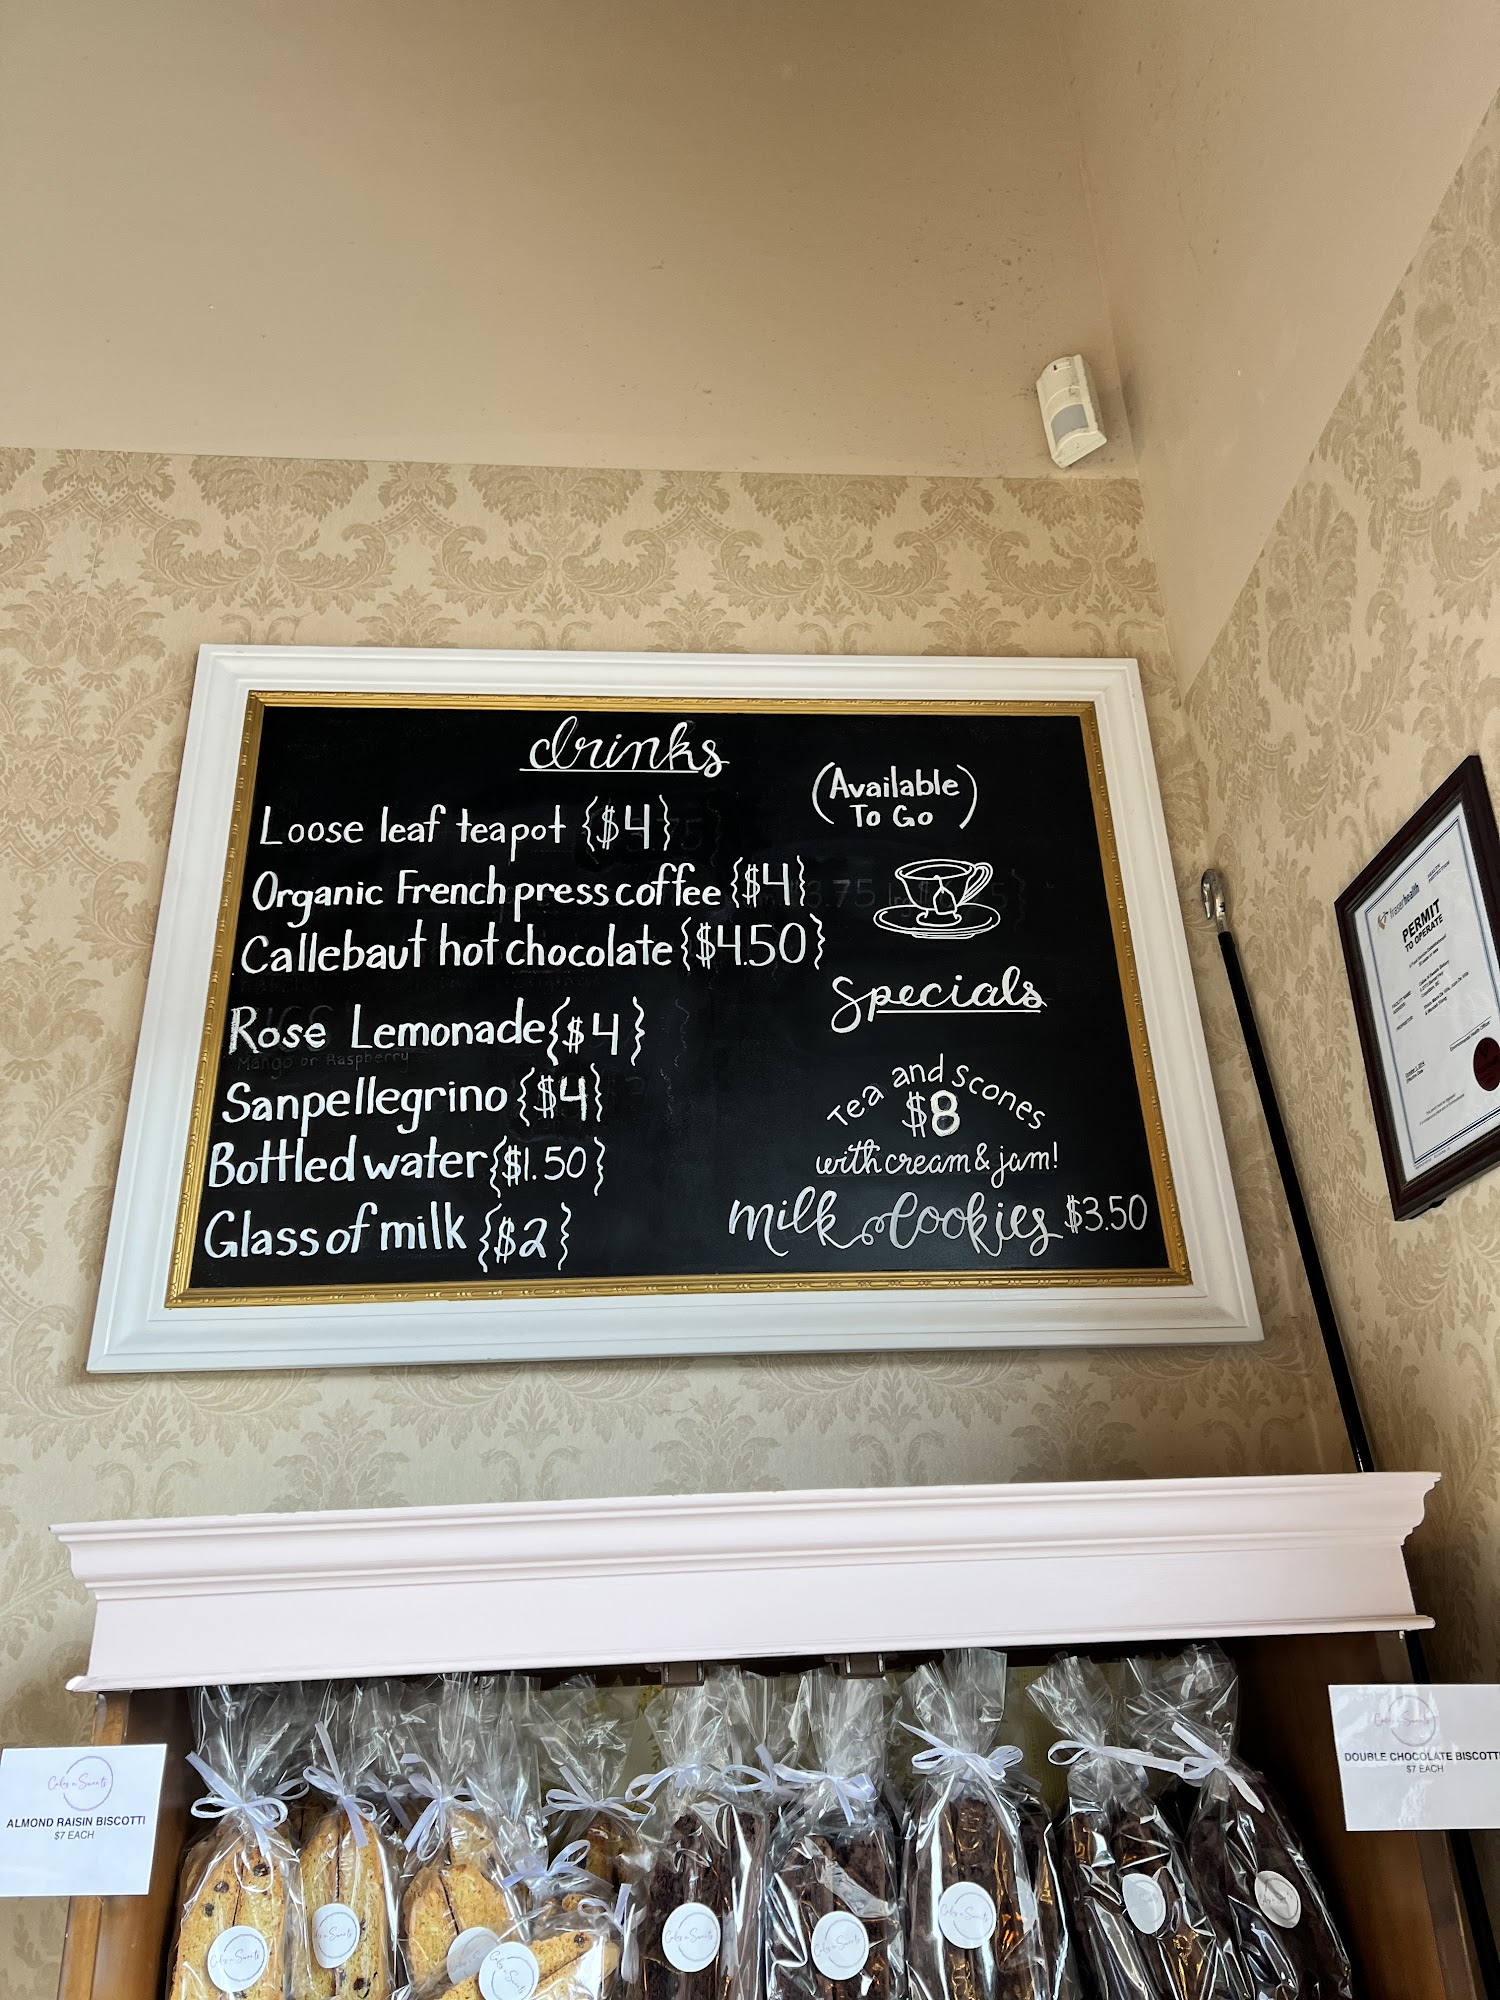 drinks
(Available
To Go)
Loose leaf teapot {$4}
Organic French press coffee {$4}
Callebaut hot chocolate {$4.50}
Rose Lemonade {$4}
Mango or Raspberry
Sanpellegrino {$4}
Bottled water {$1.50}
Glass of milk {$2}
Specials
Tea and Scones
$8
with cream & jam!
milk & Cookies $3.50
fraserhealth
HEALTH PROTECTION
PERMIT
TO OPERATE
ALMOND RAISIN BISCOTTI
$7 EACH
DOUBLE CHOCOLATE BISCOTTI
$7 EACH